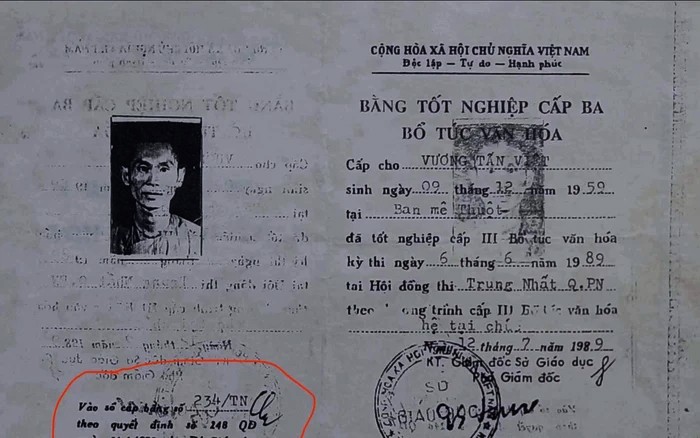 CỘNG HÒA XÃ HỘI CHỦ NGHĨA VIỆT NAM
Độc lập — Tự do — Hạnh phúc
BẰNG TỐT NGHIỆP CẤP BA
BỔ TÚC VĂN HÓA
Cấp cho VƯƠNG TẤN VIỆT
sinh ngày 09 tháng 12 năm 1959
tại Ban mê Thuột
đã tốt nghiệp cấp III Bổ túc văn hóa
kỳ thi ngày 6 tháng 6 năm 1989
tại Hội đồng thi Trung Nhất Q.PN
theo chương trình cấp III Bổ túc văn hóa
hệ tại chức
12 tháng 7 năm 1989
KT. Giám đốc Sở Giáo dục
Phó Giám đốc
SỞ
GIÁO DỤC
Vào sổ cấp bằng số 234/TN
theo quyết định số 248 QĐ